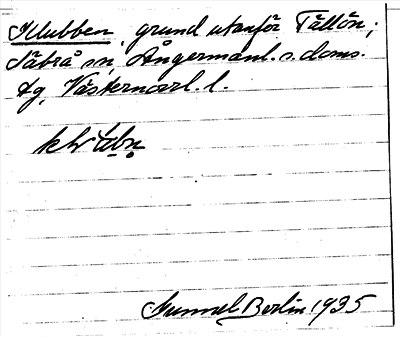 Klubben, grund utanför Tällön;
Säbrå sn, Ångermanl. s. doms.
tg, Västernorrl. l.
Gunnel Berlin 1935